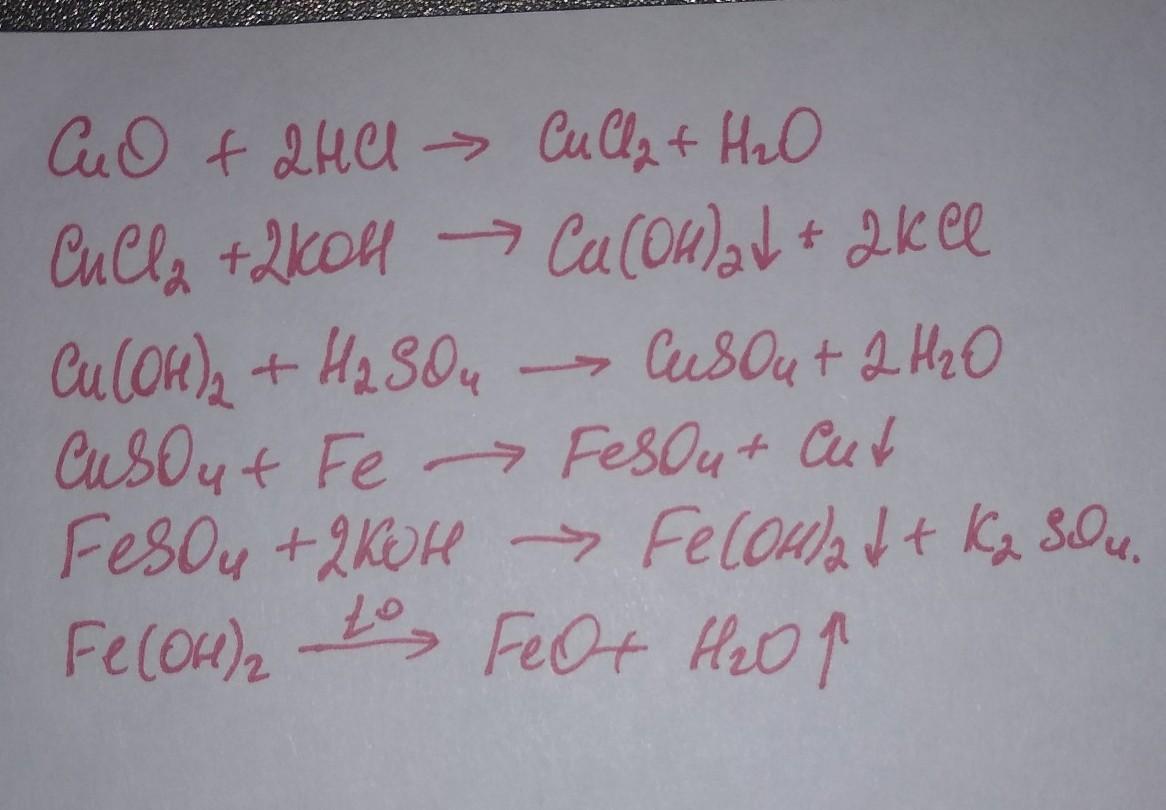 CuO + 2HCl → CuCl₂ + H₂O
CuCl₂ + 2KOH → Cu(OH)₂↓ + 2KCl
Cu(OH)₂ + H₂SO₄ → CuSO₄ + 2H₂O
CuSO₄ + Fe → FeSO₄ + Cu↓
FeSO₄ + 2KOH → Fe(OH)₂↓ + K₂SO₄.
Fe(OH)₂ —t°→ FeO + H₂O↑